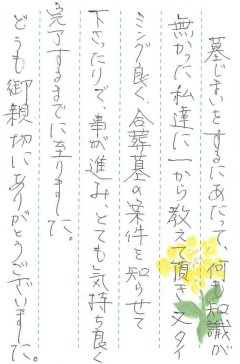 墓じまいをするにあたって、何も知識が
無かった私達に一から教えて頂き、又タイ
ミング良く、合葬墓の案件を知らせて
下さったりで、事が進み、とても気持ち良く
完了するまでに至りました。
どうも御親切にありがとうございました。